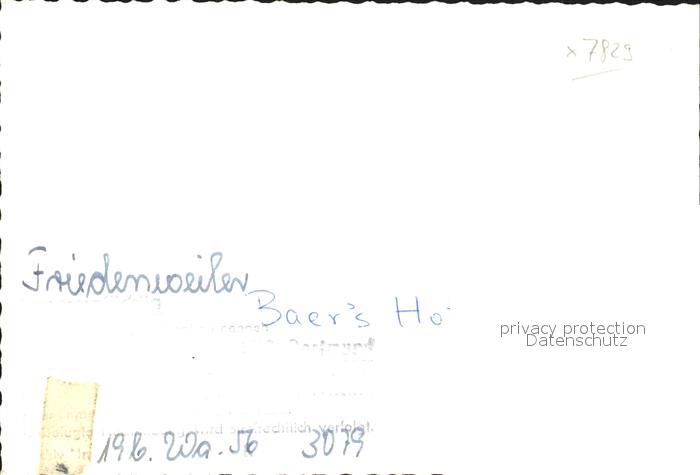 x 7829
Friedenweiler
Baer's Ho
privacy protection
Datenschutz
Dortmund
wird strafrechtlich verfolgt.
196. Wa. 56 3079